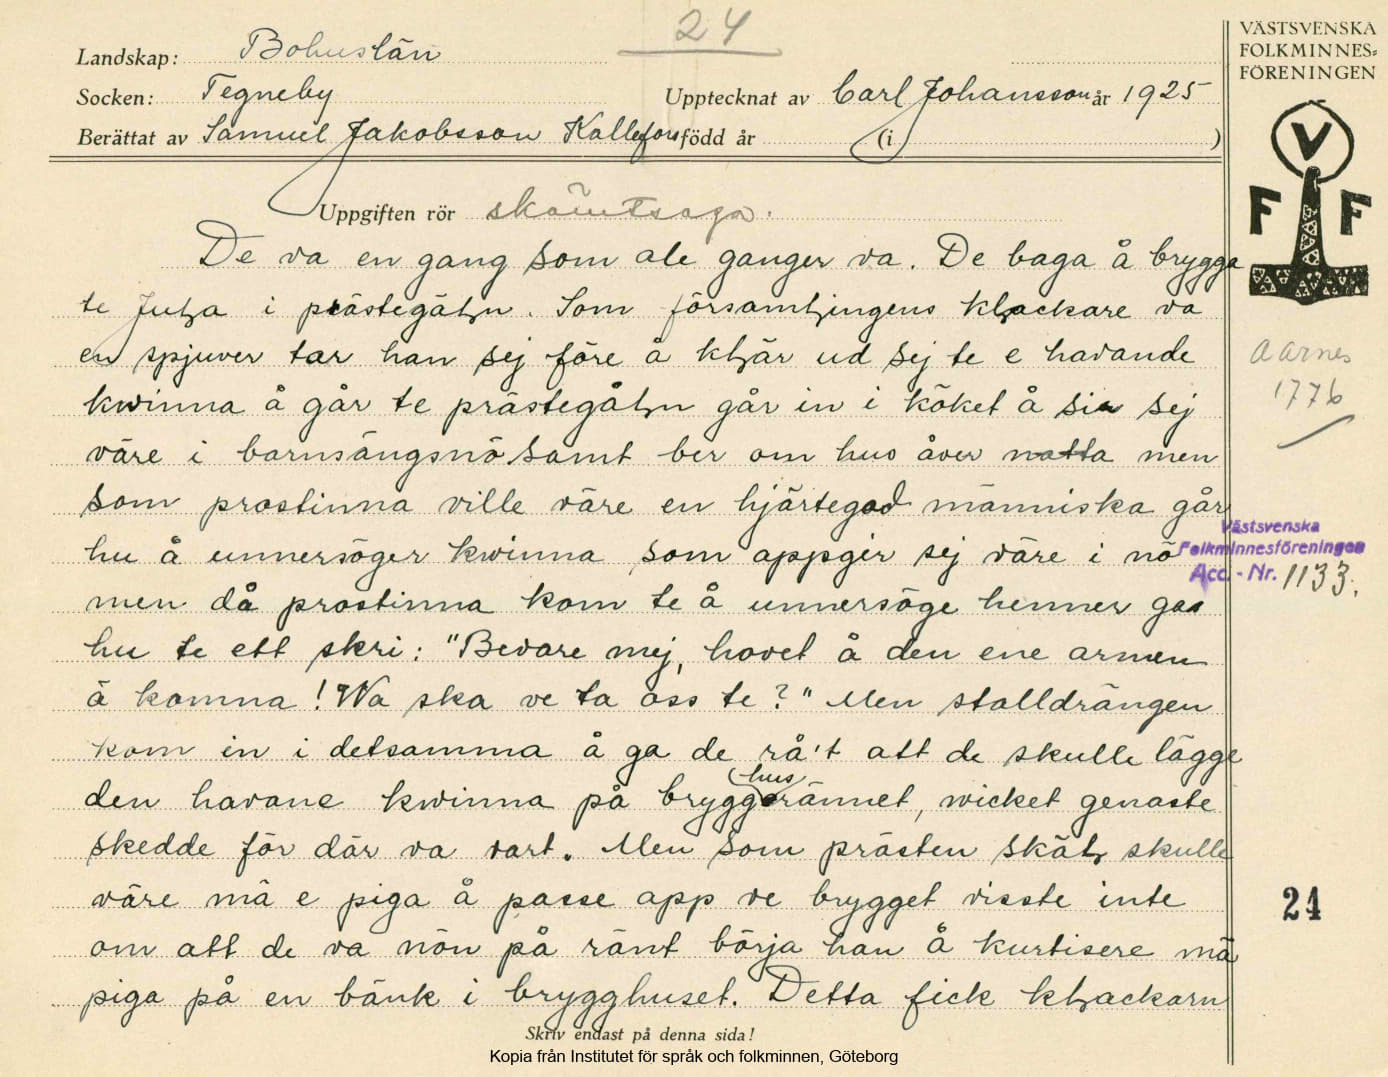 24
VÄSTSVENSKA
FOLKMINNES=
FÖRENINGEN
Landskap: Bohuslän
Socken: Tegneby Upptecknat av Carl Johansson år 1925
Berättat av Samuel Jakobsson Kallefors född år (i )
V
F F
Uppgiften rör skämtsaga.
De va en gang som ale ganger va. De baga å brygga
te Juḷa i prästegåḷn. Som församḷingens kḷackare va
en spjuver tar han sej före å kḷär ud sej te e havande
kwinna å går te prästegåḷn går in i köket å sir sej
väre i barnsängsnö samt ber om hus åver natta men
som prostinna ville väre en hjärtegod människa går
hu å unnersöger kwinna som appgir sej väre i nö
men då prostinna kom te å unnersöge henner ga
hu te ett skri: "Bevare mej, hovet å den ene armen
ä komna! Wa ska ve ta oss te?" Men stalldrängen
kom in i detsamma å ga de rå't att de skulle lägge
den havane kwinna på brygghusrännet, wicket genaste
skedde för där va vart. Men som prästen skäḷ skulle
väre mä e piga å passe app ve brygget visste inte
om att de va nön på ränt börja han å kurtisere mä
piga på en bänk i brygghuset. Detta fick kḷackarn
Aarnes
1776
Västsvenska
Folkminnesföreningen
Acc. - Nr. 1133.
24
Skriv endast på denna sida!
Kopia från Institutet för språk och folkminnen, Göteborg